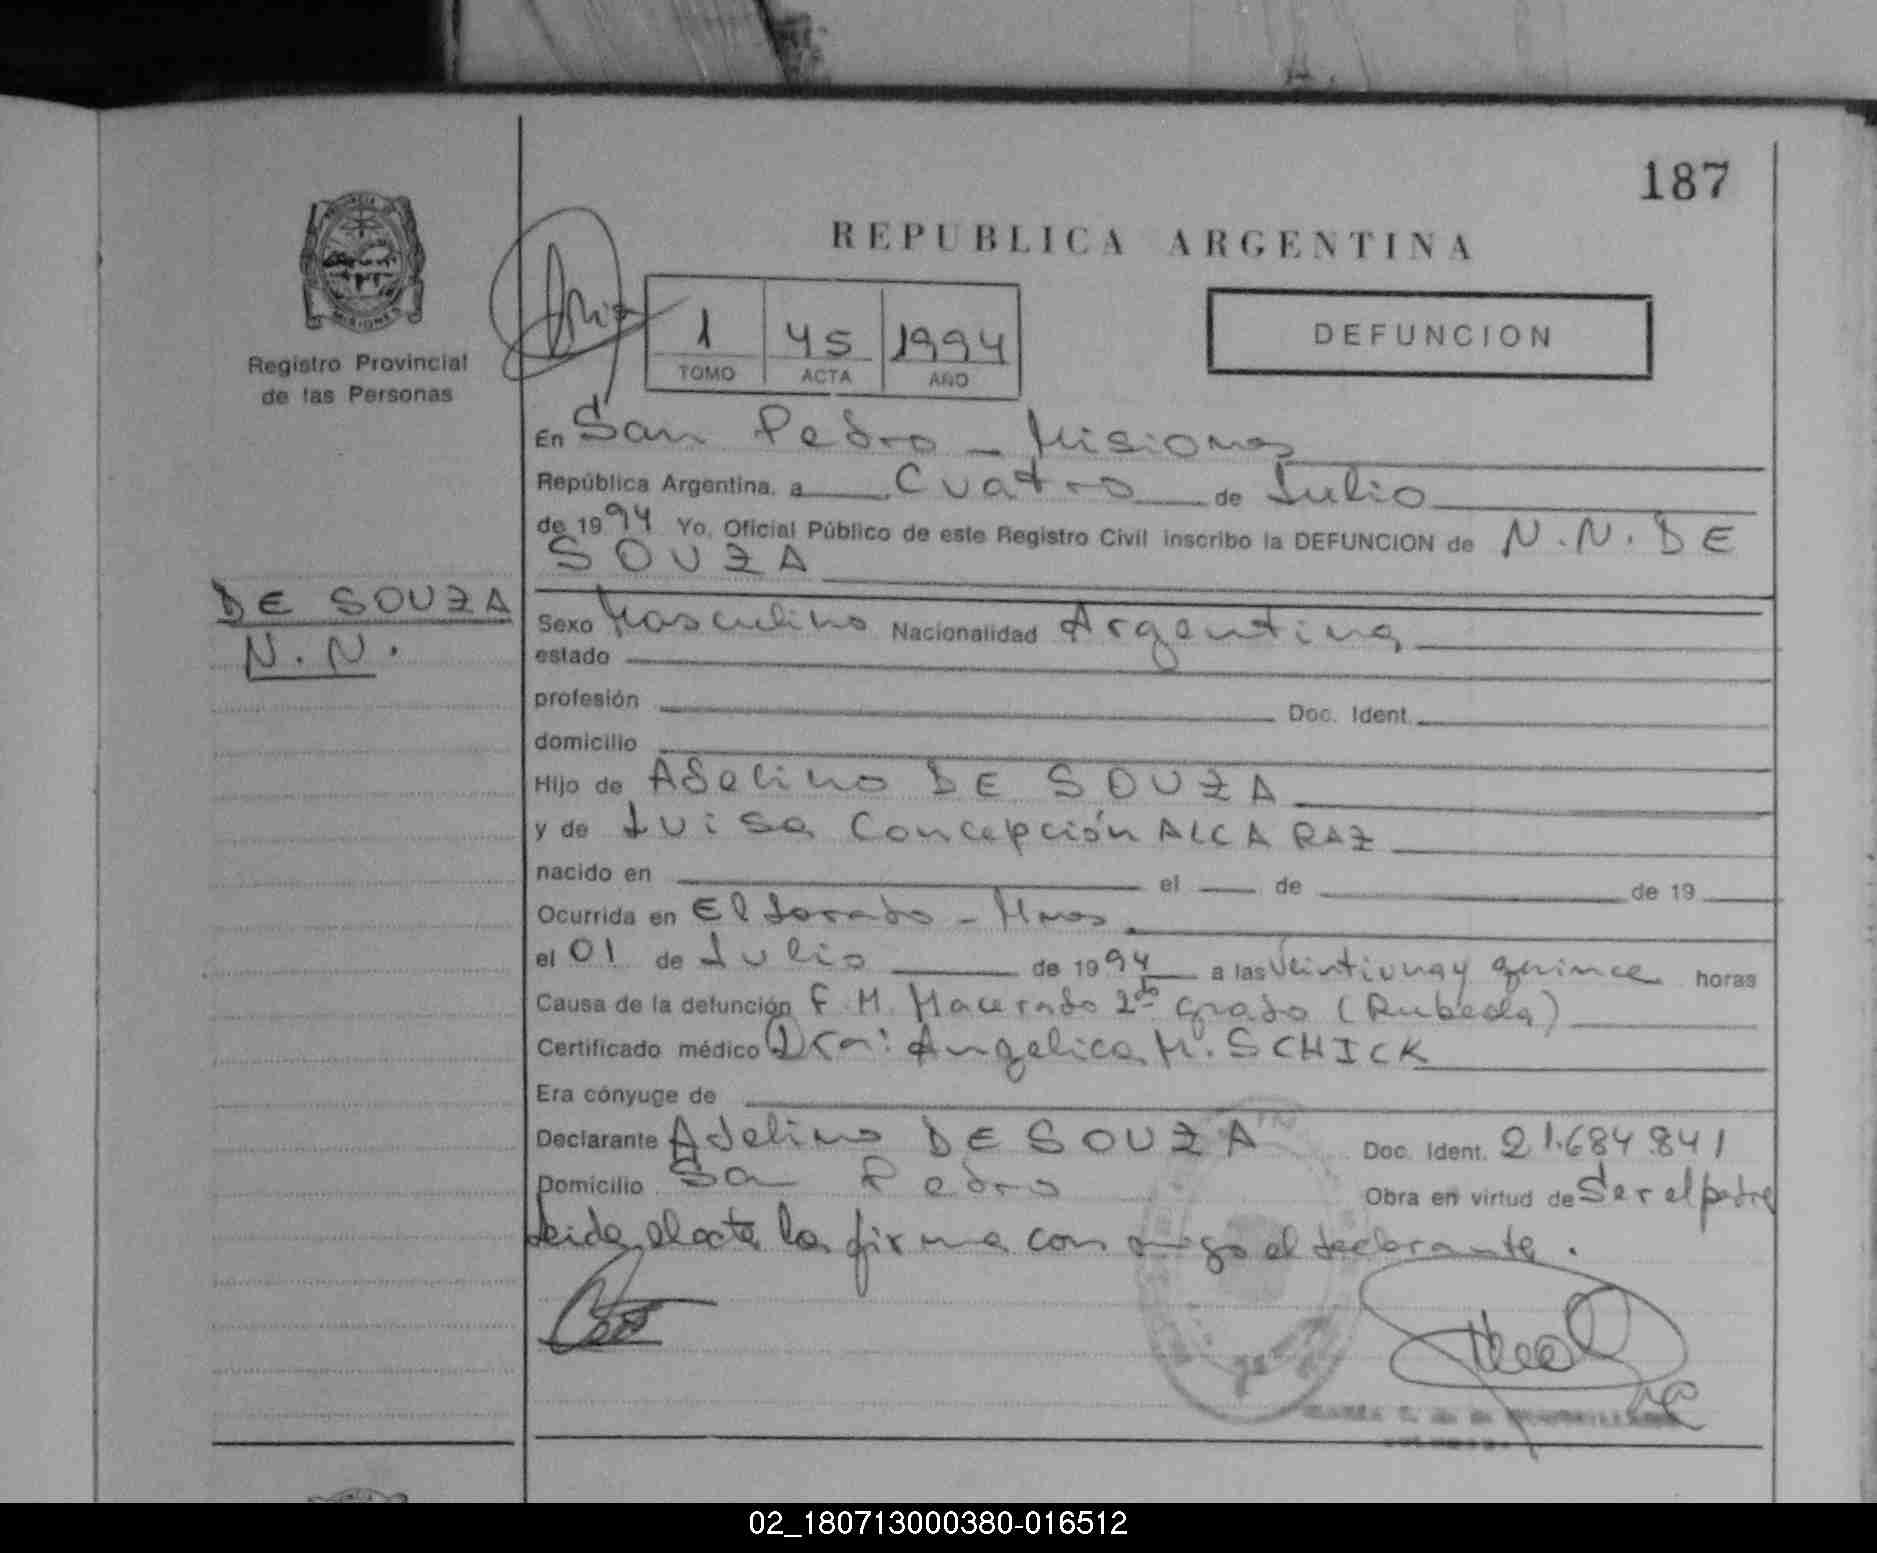 187
REPUBLICA ARGENTINA
PROVINCIA DE
MISIONES
Registro Provincial
de las Personas
1 45 1994
TOMO ACTA AÑO
DEFUNCION
En San Pedro - Misiones
República Argentina, a Cuatro de Julio
de 1994 Yo, Oficial Público de este Registro Civil inscribo la DEFUNCION de N.N. DE
SOUZA
DE SOUZA
N.N.
Sexo Masculino Nacionalidad Argentina
estado
profesión Doc. Ident.
domicilio
Hijo de Adelino DE SOUZA
y de Luisa Concepción ALCARAZ
nacido en el de de 19
Ocurrida en Eldorado - Mnes
el 01 de Julio de 1994 a las Veintiuna y quince horas
Causa de la defunción F.M. Macerado 2do grado (Rubeola)
Certificado médico Dra: Angelica M. SCHICK
Era cónyuge de
Declarante Adelino DE SOUZA Doc. Ident. 21.684.841
Domicilio San Pedro Obra en virtud de Ser el padre
Leida el acta la firma con migo el declarante.
02_180713000380-016512